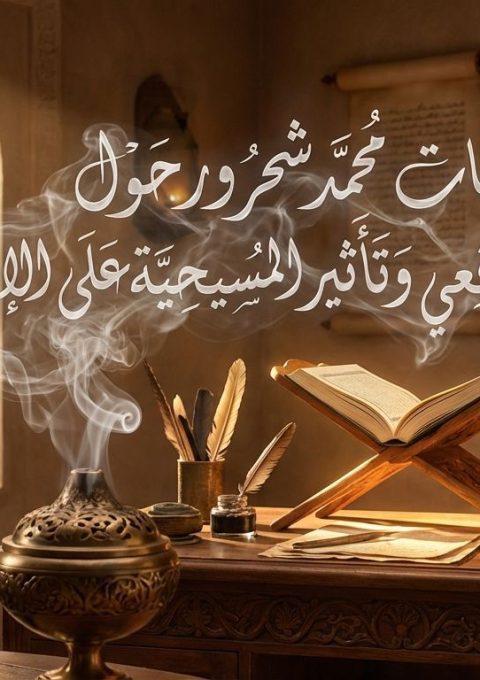 مُحمَّد شحرُور حَوْل
وَتَأَثير المسِيحِيَّة عَلَى